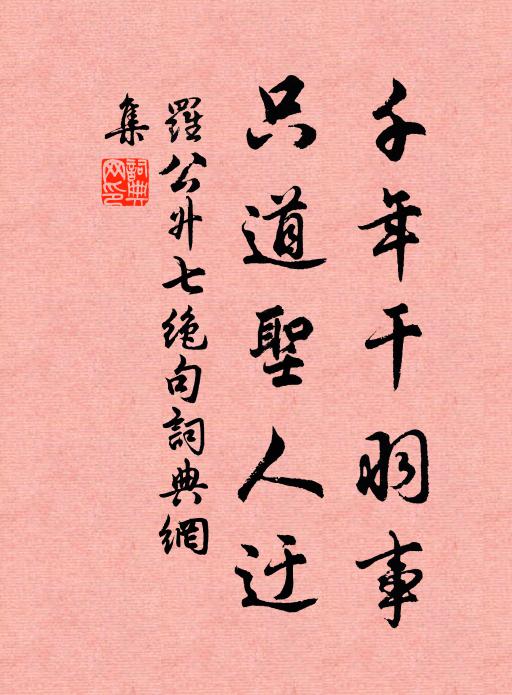 千年干羽事
只道聖人迂
羅公升七绝句詞典網
集
詞典網印